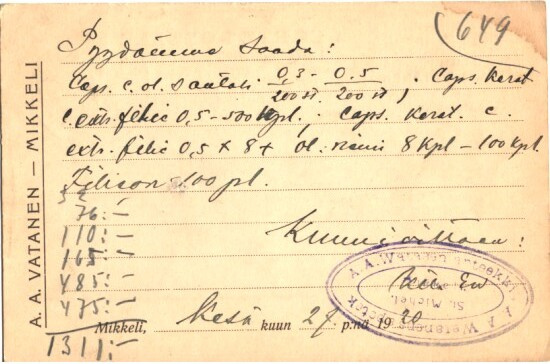 649
Pyydämme Saada:
Caps. c. ol. santali 0,3 - 0,5 . Caps. Kerat
200 st 200 st
c. extr. filic 0,5 - 500 kpl. Caps. Kerat. c.
extr. filic 0,5 x 8 + ol. ricini 8 Kpl - 100 kpl.
Filison - 100 pl.
76:-
110:-
165:-
485:-
475:-
1311:-
Kunnioittaen:
A. A. VATANEN — MIKKELI
St. Michel.
Mikkeli, Kesä kuun 27 p:nä 1920